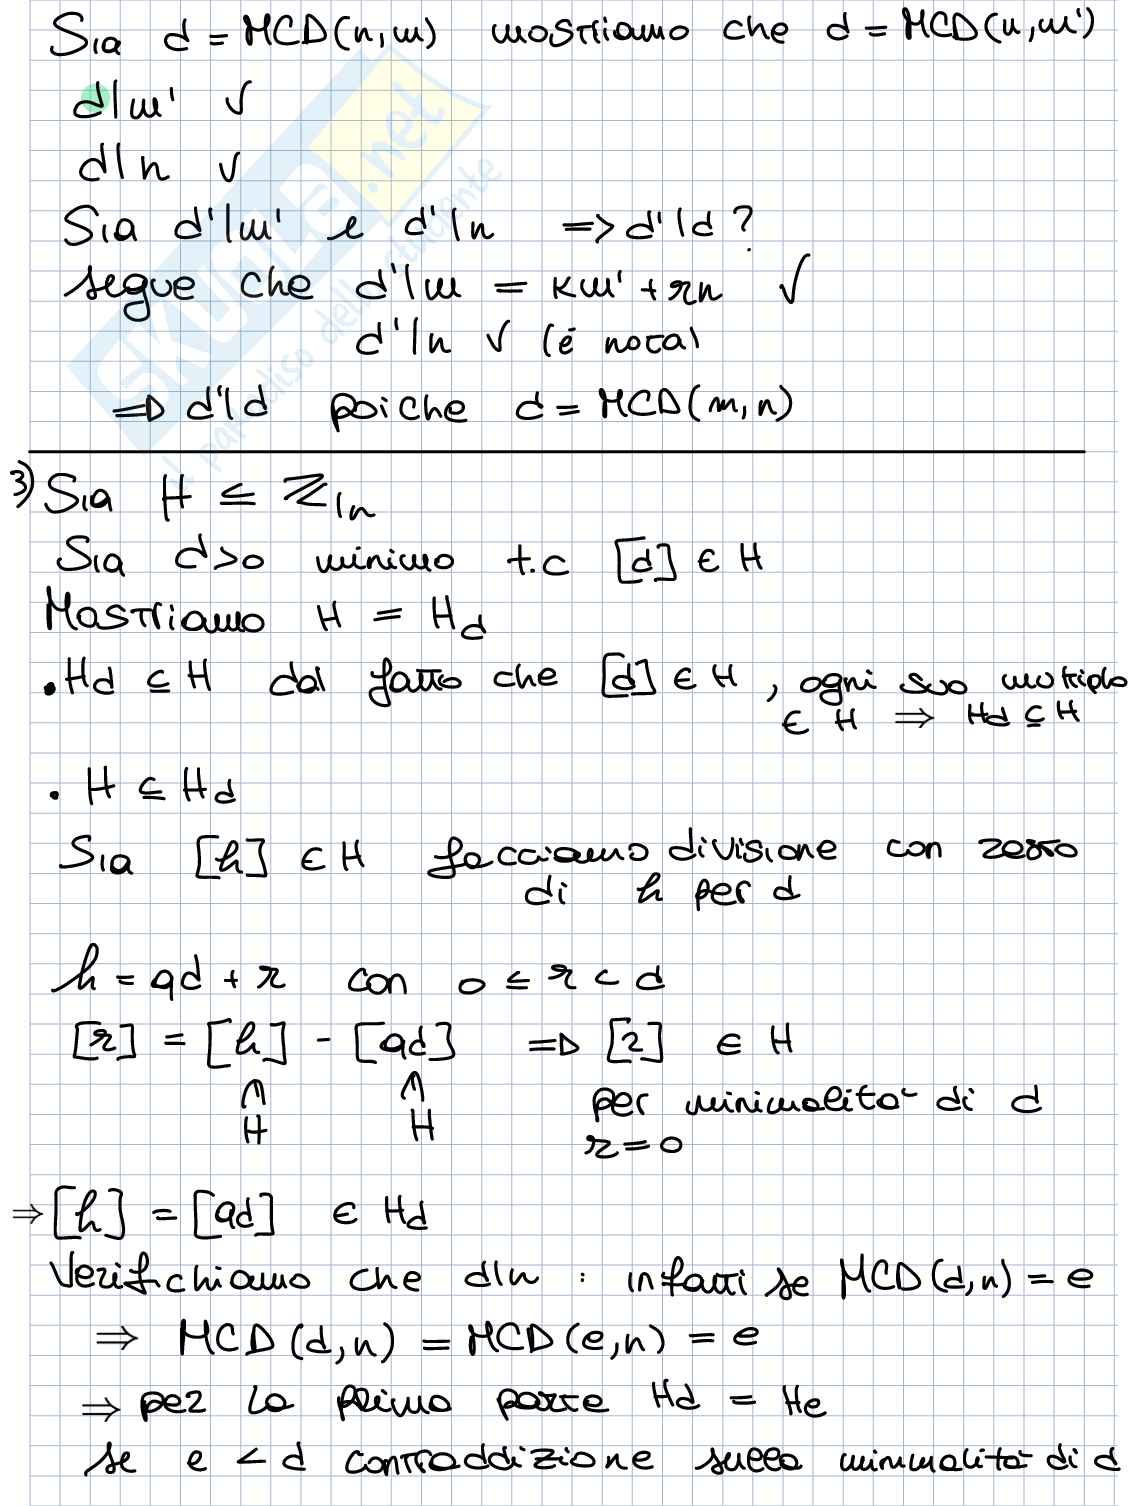 Sia d = MCD(n,m) mostriamo che d = MCD(n,m')
d|m' √
d|n √
Sia d'|m' e d'|n => d'|d ?
segue che d'|m = km' + rn √
d'|n √ (è nota)
=> d'|d poiche d = MCD(m,n)
3) Sia H ≤ ℤ|n
Sia d>0 minimo t.c [d] ∈ H
Mostriamo H = Hd
• Hd ⊆ H dal fatto che [d] ∈ H , ogni suo multiplo
∈ H ⇒ Hd ⊆ H
• H ⊆ Hd
Sia [h] ∈ H facciamo divisione con resto
di h per d
h = qd + r con 0 ≤ r < d
[r] = [h] - [qd] => [r] ∈ H
H H per minimalità di d
r = 0
⇒ [h] = [qd] ∈ Hd
Verifichiamo che d|n : infatti se MCD(d,n) = e
⇒ MCD(d,n) = MCD(e,n) = e
⇒ per la prima parte Hd = He
se e < d contraddizione sulla minimalità di d
SKUOLA.net
il paradiso dello studente